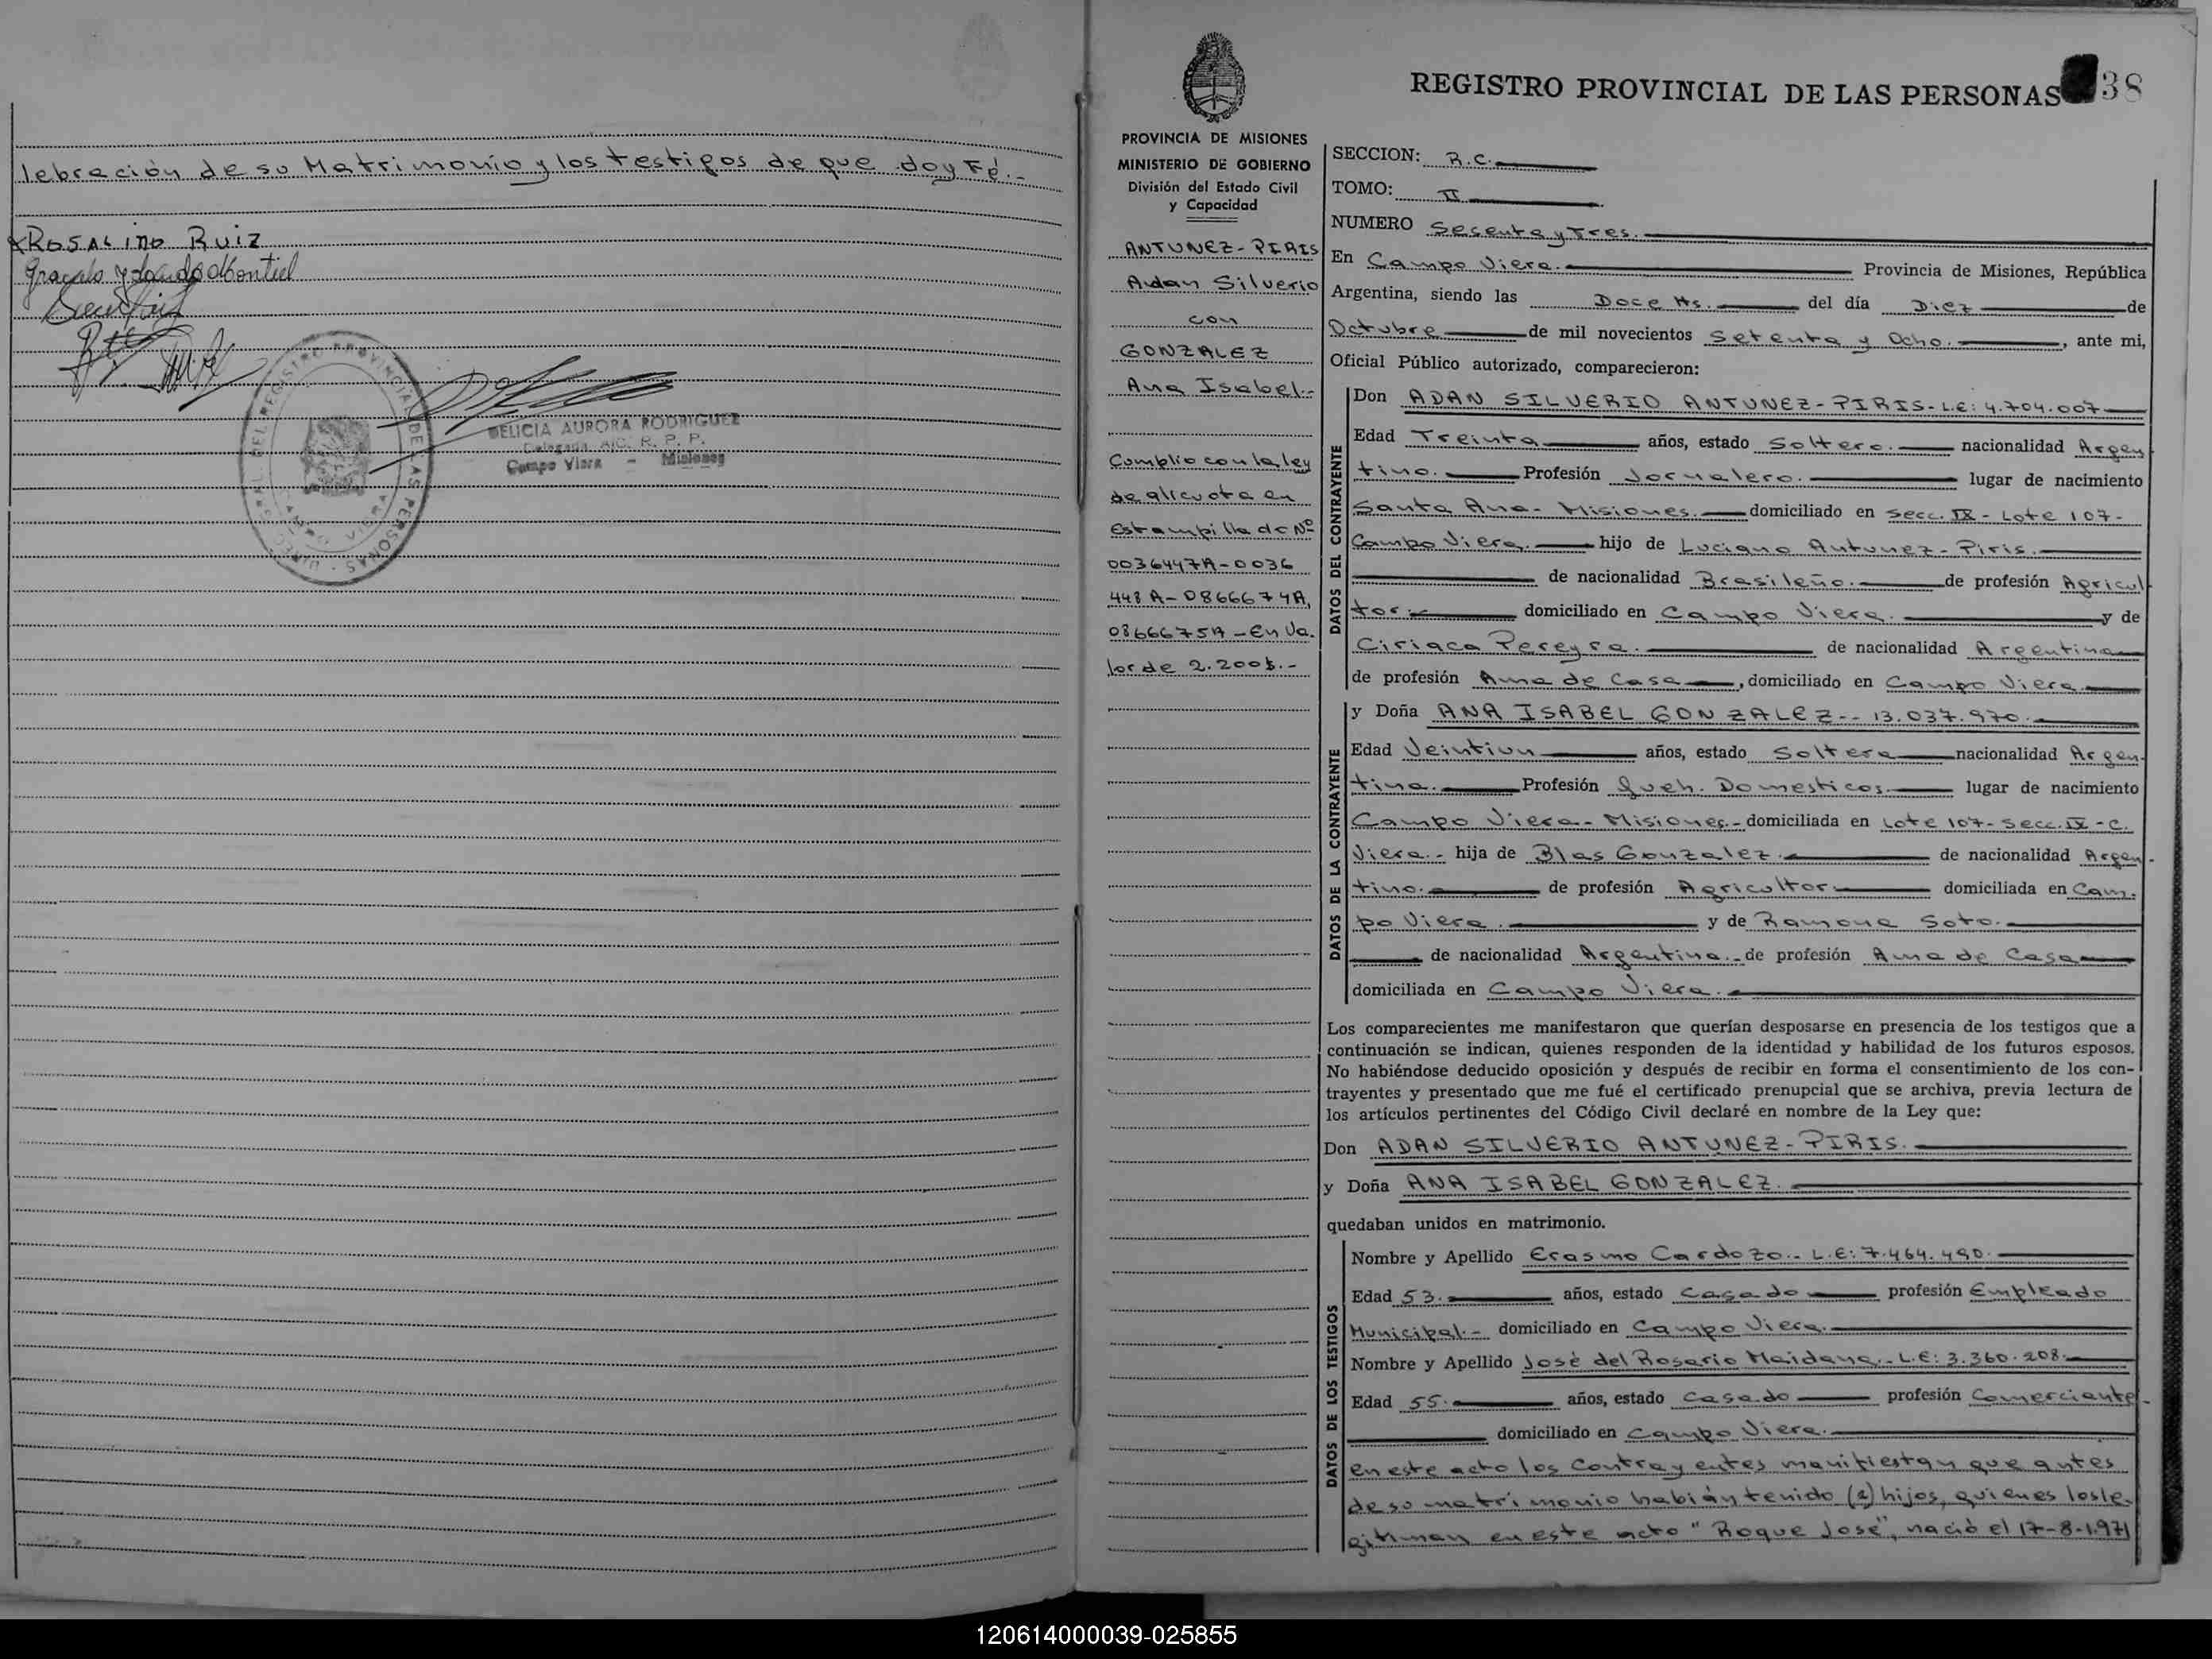 lebración de su Matrimonio y los testigos de que doy Fé.-
ROSALINO RUIZ
DELICIA AURORA RODRIGUEZ
Delegada R. P. P.
Campo Viera - Misiones
REGISTRO PROVINCIAL DE LAS PERSONAS
38
PROVINCIA DE MISIONES
MINISTERIO DE GOBIERNO
División del Estado Civil
y Capacidad
ANTUNEZ-PIRIS
Adan Silverio
con
GONZALEZ
Ana Isabel.-
Cumplio con la ley
de alicuota en
Estampilla do Nº
0036447A-0036
448A-0866674A,
0866675A-En Va.
lor de 2.200$.-
SECCION: R.C.
TOMO: II
NUMERO Sesenta y Tres.
En Campo Viera. Provincia de Misiones, República
Argentina, siendo las Doce Hs. del día Diez de
Octubre de mil novecientos Setenta y Ocho. , ante mi,
Oficial Público autorizado, comparecieron:
DATOS DEL CONTRAYENTE
Don ADAN SILVERIO ANTUNEZ-PIRIS-L.E: 4.704.007
Edad Treinta años, estado Soltero. nacionalidad Argen
tino. Profesión Jornalero. lugar de nacimiento
Santa Ana- Misiones. domiciliado en Secc. IX- Lote 107-
Campo Viera. hijo de Luciano Antunez-Piris.
de nacionalidad Brasileño. de profesión Agricul
tor. domiciliado en Campo Viera. y de
Ciriaca Pereyra. de nacionalidad Argentina
de profesión Ama de Casa , domiciliado en Campo Viera
DATOS DE LA CONTRAYENTE
y Doña ANA ISABEL GONZALEZ-- 13.037.970.
Edad Veintiun años, estado Soltera nacionalidad Argen-
tina. Profesión Queh. Domesticos. lugar de nacimiento
Campo Viera- Misiones.- domiciliada en Lote 107- Secc. IX -C.
Viera.- hija de Blas Gonzalez. de nacionalidad Argen-
tino. de profesión Agricultor domiciliada en Cam.
po Viera. y de Ramona Soto.
de nacionalidad Argentina.- de profesión Ama de Casa
domiciliada en Campo Viera.
Los comparecientes me manifestaron que querían desposarse en presencia de los testigos que a
continuación se indican, quienes responden de la identidad y habilidad de los futuros esposos.
No habiéndose deducido oposición y después de recibir en forma el consentimiento de los con-
trayentes y presentado que me fué el certificado prenupcial que se archiva, previa lectura de
los artículos pertinentes del Código Civil declaré en nombre de la Ley que:
Don ADAN SILVERIO ANTUNEZ-PIRIS.
y Doña ANA ISABEL GONZALEZ.
quedaban unidos en matrimonio.
DATOS DE LOS TESTIGOS
Nombre y Apellido Erasmo Cardozo.- L.E: 7.464.490.
Edad 53. años, estado Casado profesión Empleado
Municipal.- domiciliado en Campo Viera.
Nombre y Apellido José del Rosario Maidana.- L.E: 3.360.208.
Edad 55. años, estado Casado profesión Comerciante-
domiciliado en Campo Viera.
en este acto los Contrayentes manifiestan que antes
de su matrimonio habían tenido (2) hijos, quienes los le-
gitiman en este acto "Roque José", nació el 17-8-1.971
120614000039-025855